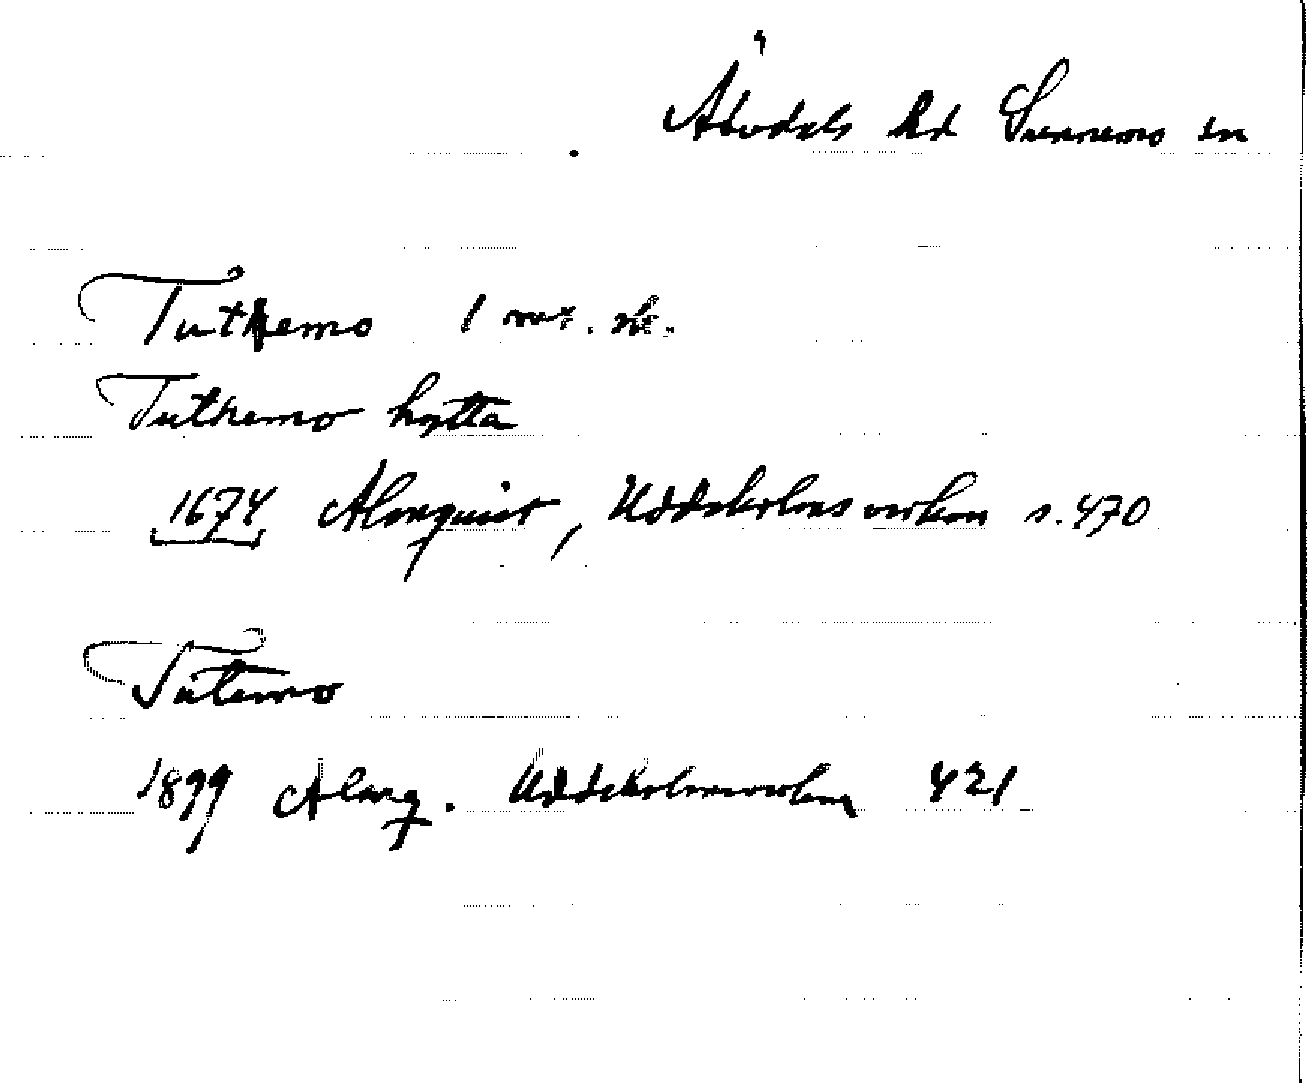 Älvdals hd Sunnemo sn
Tuthemo 1 mt. sk.
Tuthemo hytta
1674 Almquist, Uddeholmsverken s. 470
Tutemo
1899 Almq. Uddeholmsverken 421